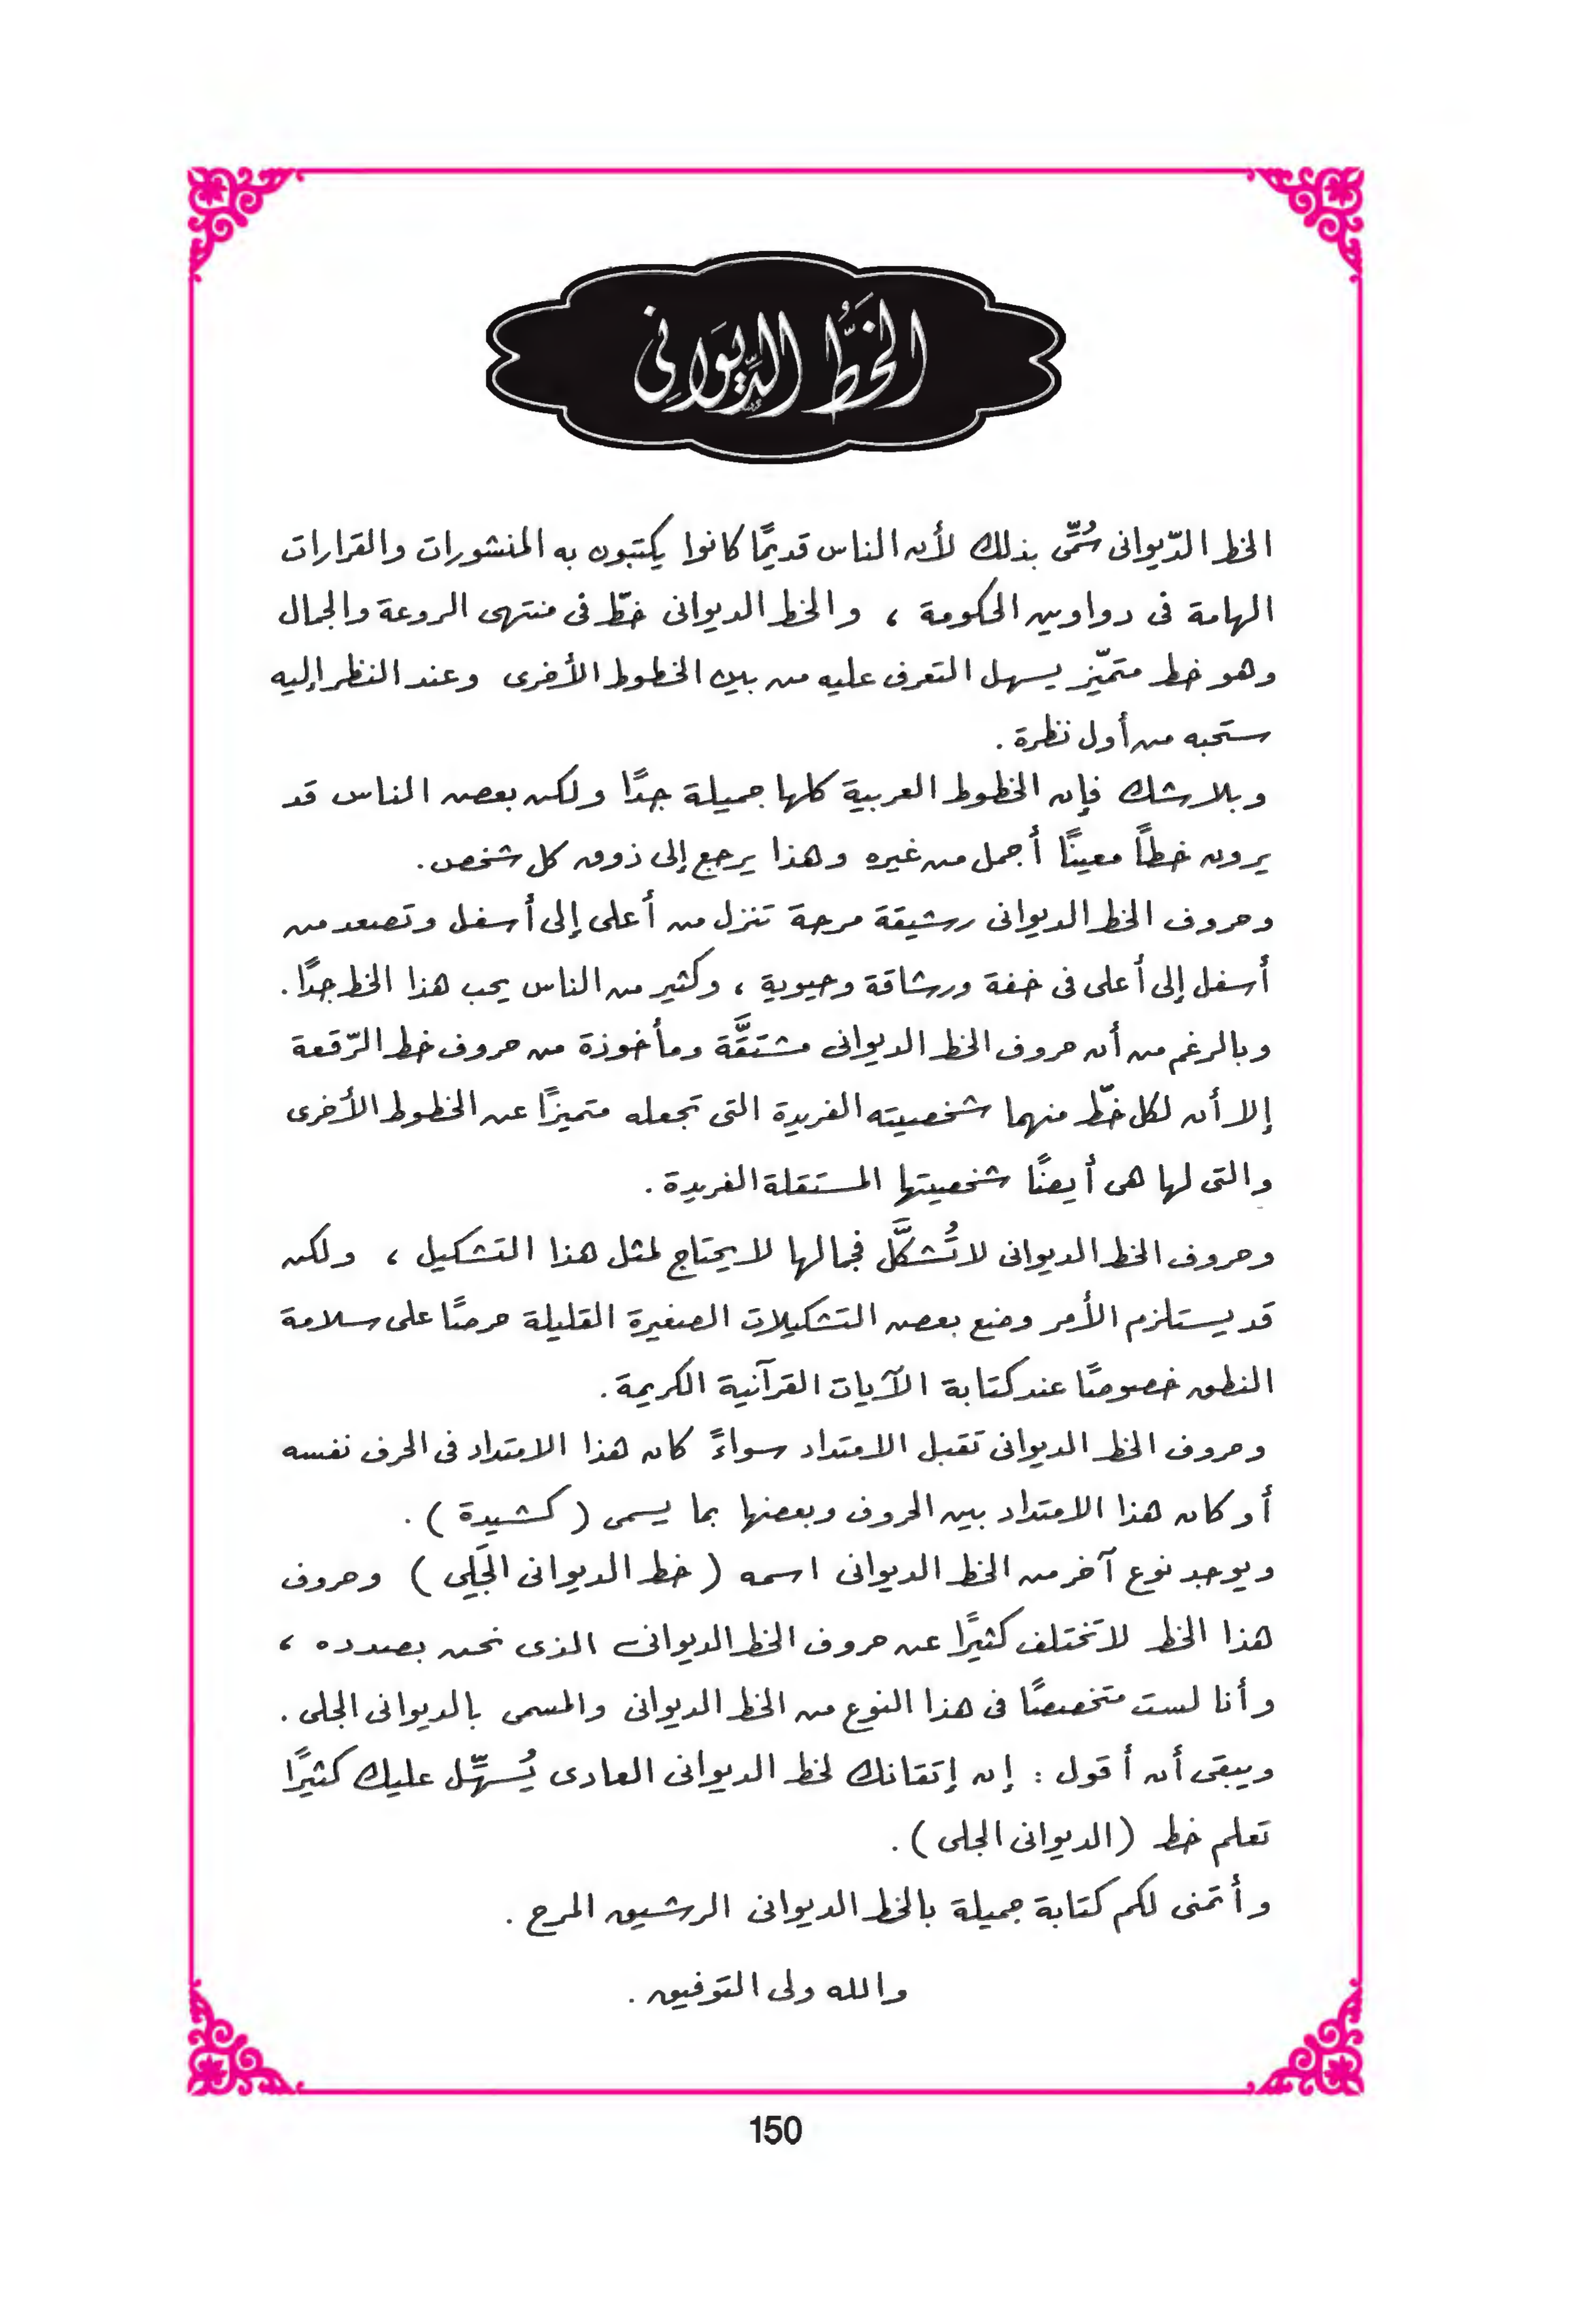 الخَطُّ الدِّيوَانِى
الخط الدّيوانى سُمِّى بذلك لأن الناس قديمًا كانوا يكتبون به المنشورات والقرارات
الهامة فى دواوين الحكومة ، والخط الديوانى خطّ فى منتهى الروعة والجمال
وهو خط متميّز يسهل التعرف عليه من بين الخطوط الأخرى وعند النظر إليه
ستحبه من أول نظرة .
وبلا شك فإن الخطوط العربية كلها جميلة جدًا ولكن بعض الناس قد
يرون خطاً معينًا أجمل من غيره وهذا يرجع إلى ذوق كل شخص .
وحروف الخط الديوانى رشيقة مرحة تنزل من أعلى إلى أسفل وتصعد من
أسفل إلى أعلى فى خفة ورشاقة وحيوية ، وكثير من الناس يحب هذا الخط جدًا .
وبالرغم من أن حروف الخط الديوانى مشتقَّة ومأخوذة من حروف خط الرّقعة
إلا أن لكل خطّ منهما شخصيته الفريدة التى تجعله متميزًا عن الخطوط الأخرى
والتى لها هى أيضًا شخصيتها المستقلة الفريدة .
وحروف الخط الديوانى لا تُشكَّل فجمالها لا يحتاج لمثل هذا التشكيل ، ولكن
قد يستلزم الأمر وضع بعض التشكيلات الصغيرة القليلة حرصًا على سلامة
النطق خصوصًا عند كتابة الآيات القرآنية الكريمة .
وحروف الخط الديوانى تقبل الامتداد سواءً كان هذا الامتداد فى الحرف نفسه
أو كان هذا الامتداد بين الحروف وبعضها بما يسمى ( كشيدة ) .
ويوجد نوع آخر من الخط الديوانى اسمه ( خط الديوانى الجَلِى ) وحروف
هذا الخط لا تختلف كثيرًا عن حروف الخط الديوانى الذى نحن بصدده ،
وأنا لست متخصصًا فى هذا النوع من الخط الديوانى والمسمى بالديوانى الجلى .
ويبقى أن أقول : إن إتقانك لخط الديوانى العادى يُسهِّل عليك كثيرًا
تعلم خط ( الديوانى الجلى ) .
وأتمنى لكم كتابة جميلة بالخط الديوانى الرشيق المرح .
والله ولى التوفيق .
150